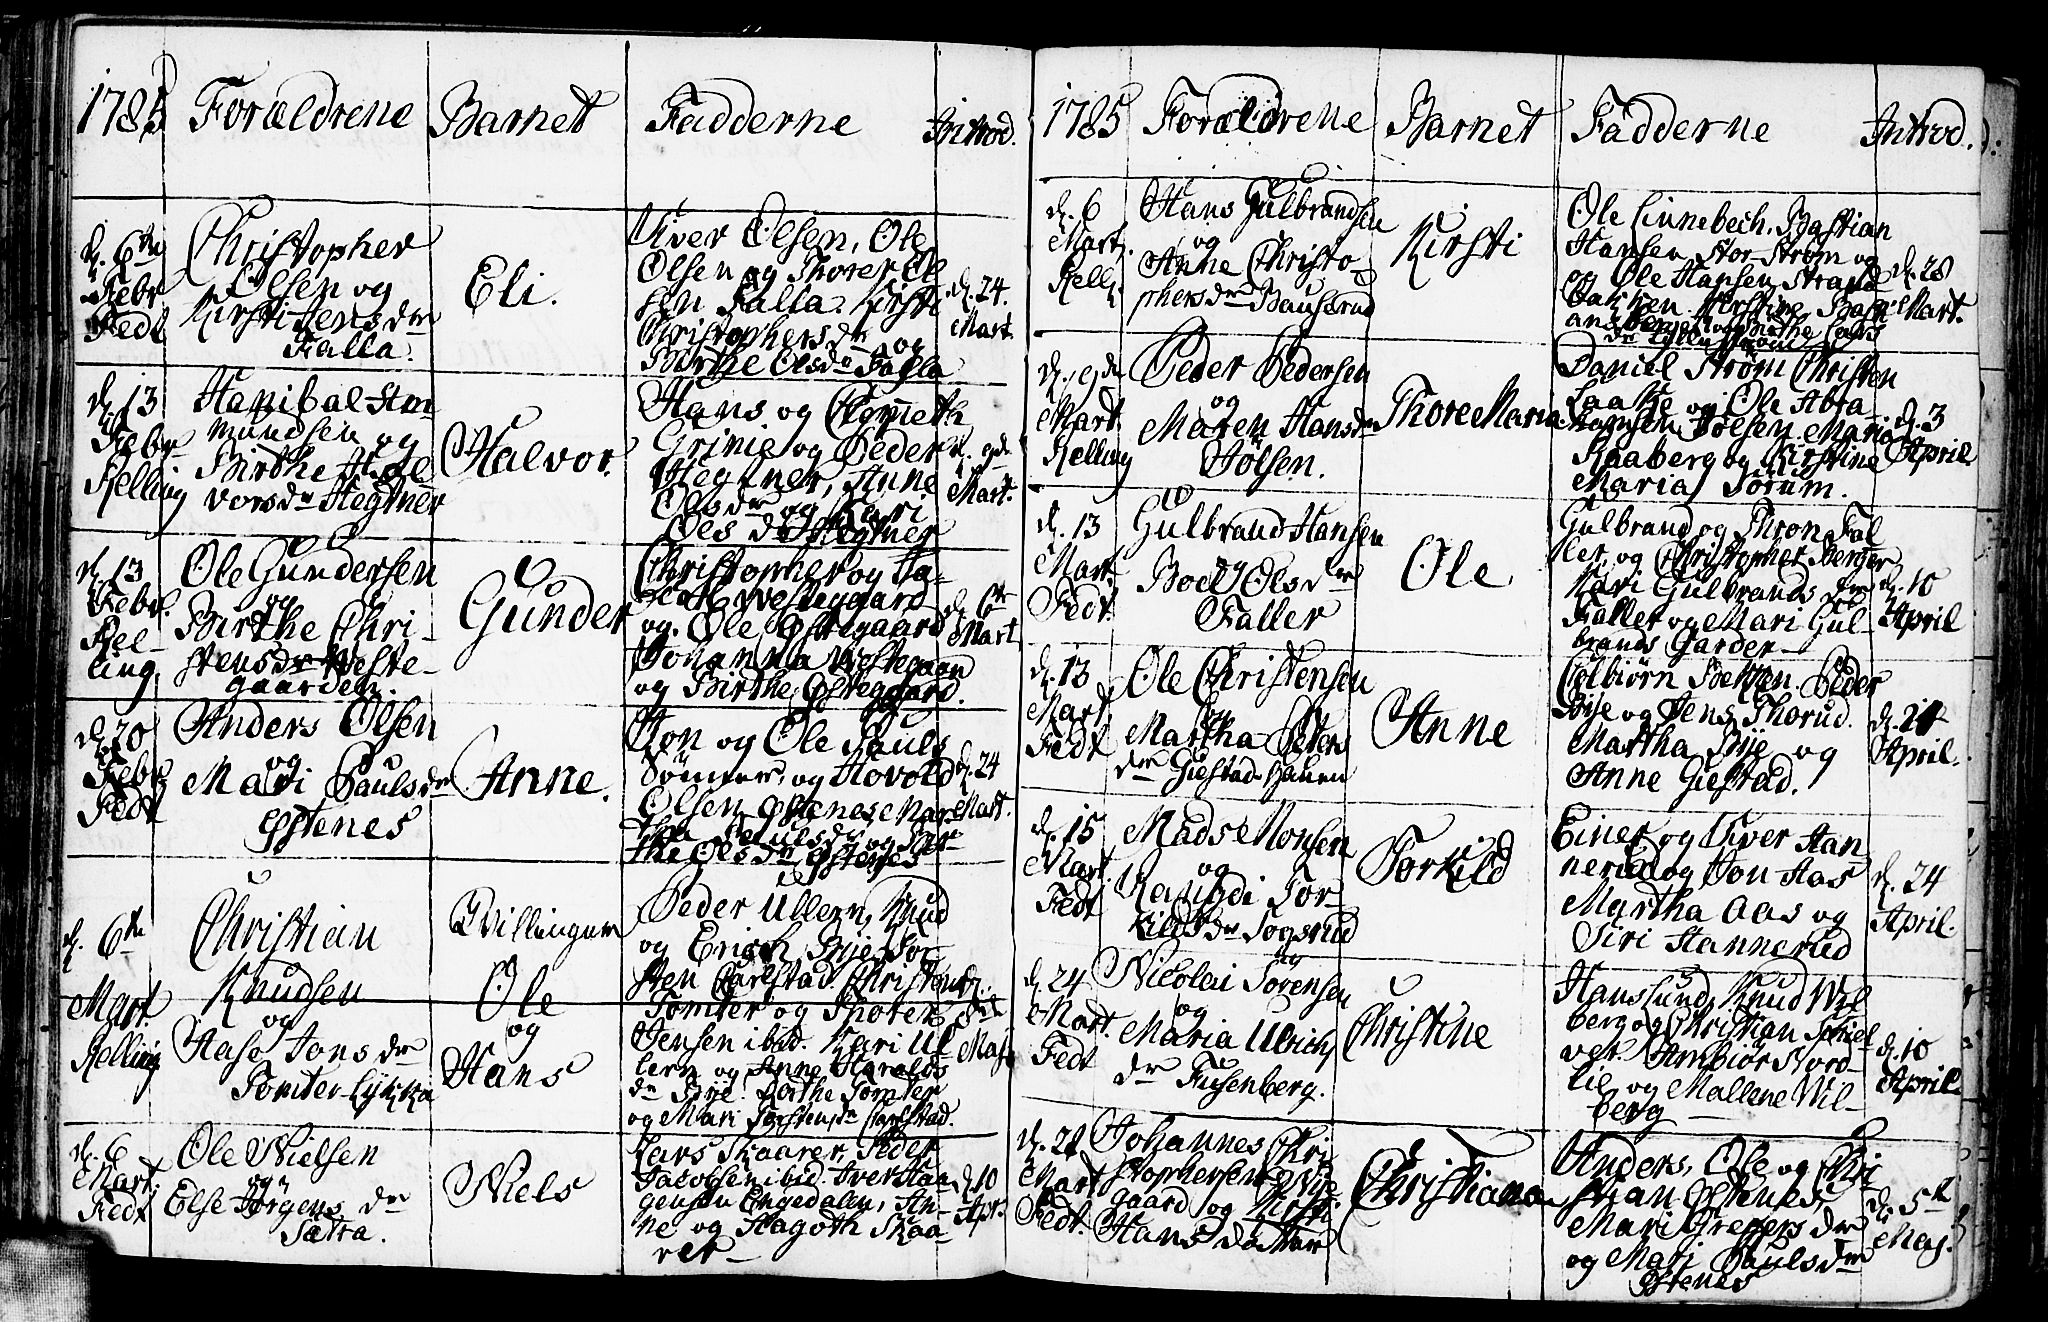 1785 Forældrene Barnet Fadderne Introd.
d. 6te
Febr
Fedt
Christopher
Olsen og
Kirsti Jens dr
Falla.
Eli.
Iver Olsen, Ole
Olsen og Thorer Ol
sen Falla. Kirsti
Christophers dr og
Birthe Olsdr Falla
d. 24.
Mart.
d. 13
Febr
Kelling
Hanibal Am
mundsen og
Birthe Hal
vorsdr Hegtner
Halvor.
Hans og
Grinie og Peder
Hegtner, Anne
Olsdr og Kari
Ols dr Hegtner
d. 9de
Mart.
d. 13
Febr.
Kel-
ling
Ole Gundersen
og
Birthe Chri-
stensdr Weste-
gaarden.
Gunder
Christopher og Ja-
cob Westegaard
og Ole Østegaard
Johanna Westegaan
og Birthe Østegaard.
d. 6te
Mart
d. 20
Febr
Fedt
Anders Olsen
og
Mari Paulsdr
Østenes
Anne.
Jon og Ole Pauls
Sønner, og Hovold
Olsen Østenes Mar
tha Paulsdr og Bir
the Olsdr Østenes
d. 24
Mart.
d. 6te
Mart.
Kelling
Christian
Knudsen
og
Aase Jons dr
Tomter-Lykka
Tvillinger
Ole
og
Hans
Peder Ullern, Knud
og Erich Bye Tor
sten Carlstad. Christen
Tomter og Thorer
Jensen ibid. Kari Ul
lern og Anne Haralds
dr Bye. Dorthe Tomter
og Mari Torstensdr Carlstad.
Maj.
d. 6
Mart.
Fedt
Ole Nielsen
og
Else Jørgens dr
Sætra.
Niels
Lars Skaarer, Peder
Jacobsen ibid. Iver Han
gensen Engedalen, An-
ne og Hagoth Skaa-
rer
d. 10
Apr.
1785 Forældrene Barnet Fadderne Introd.
d. 6
Mart.
Kell.
Hans Gulbrandsen
og
Anne Christo-
phersdr Bauserud
Kirsti
Ole Linnebech. Bastian
Hansen Stor-Strøm og
og Ole Hansen Strand
bakken. Kirstine Bast
ans
dr Lillestrøm
d. 28
Mart.
d. 9de
Mart.
Kelling
Peder Pedersen
og
Maren Hansdr
Jølsen.
Thore Maria.
Daniel Strøm Christen
Laake og Ole Abra
hamsen Jølsen, Maria
Raaberg og Kirstine
Maria Sørum.
d. 3
April
d. 13
Mart
Fedt.
Gulbrand Hansen
og
Boel Olsdr
Faller
Ole
Gulbrand og Thron Fal
ler, og Christopher Berger
Kari Gulbrands dr
Faller og Mari Gul-
brands Garder
d. 10
April
d. 13
Mart
Fedt
Ole Christensen
og
Martha Peders
dr Giestad-hauen
Anne
Colbiørn Bekken. Peder
Bye og Jens Thorud.
Martha Bye og
Anne Giestad.
d. 24
April.
d. 15
Mart.
Fedt
Mads Monsen
og
Rangdi Tor
kildsdr Togsrud
Torkild
Einer og Iver Han
nerud og Jon Aas
Martha Aas og
Siri Hannerud
d. 24
April.
d. 24
Mart.
Fedt
Nicolai Sørensen
og
Maria Ulrichs
dr Fusenberg.
Christine
Hans Lund, Knud Wil
berg og Christian Schiel
ver. Ambiør Nord-
lie og Mallene Wil-
berg
d. 10
April.
d. 28
Mart
Fedt.
Johannes Chri
stophersen Nye
gaard og Kirsti
Hans datter
Christiana
Anders, Ole og Chri
stian Østenes
Mari Gregers dr
og Mari Paulsdr
Østenes
d. 5te
Maj.